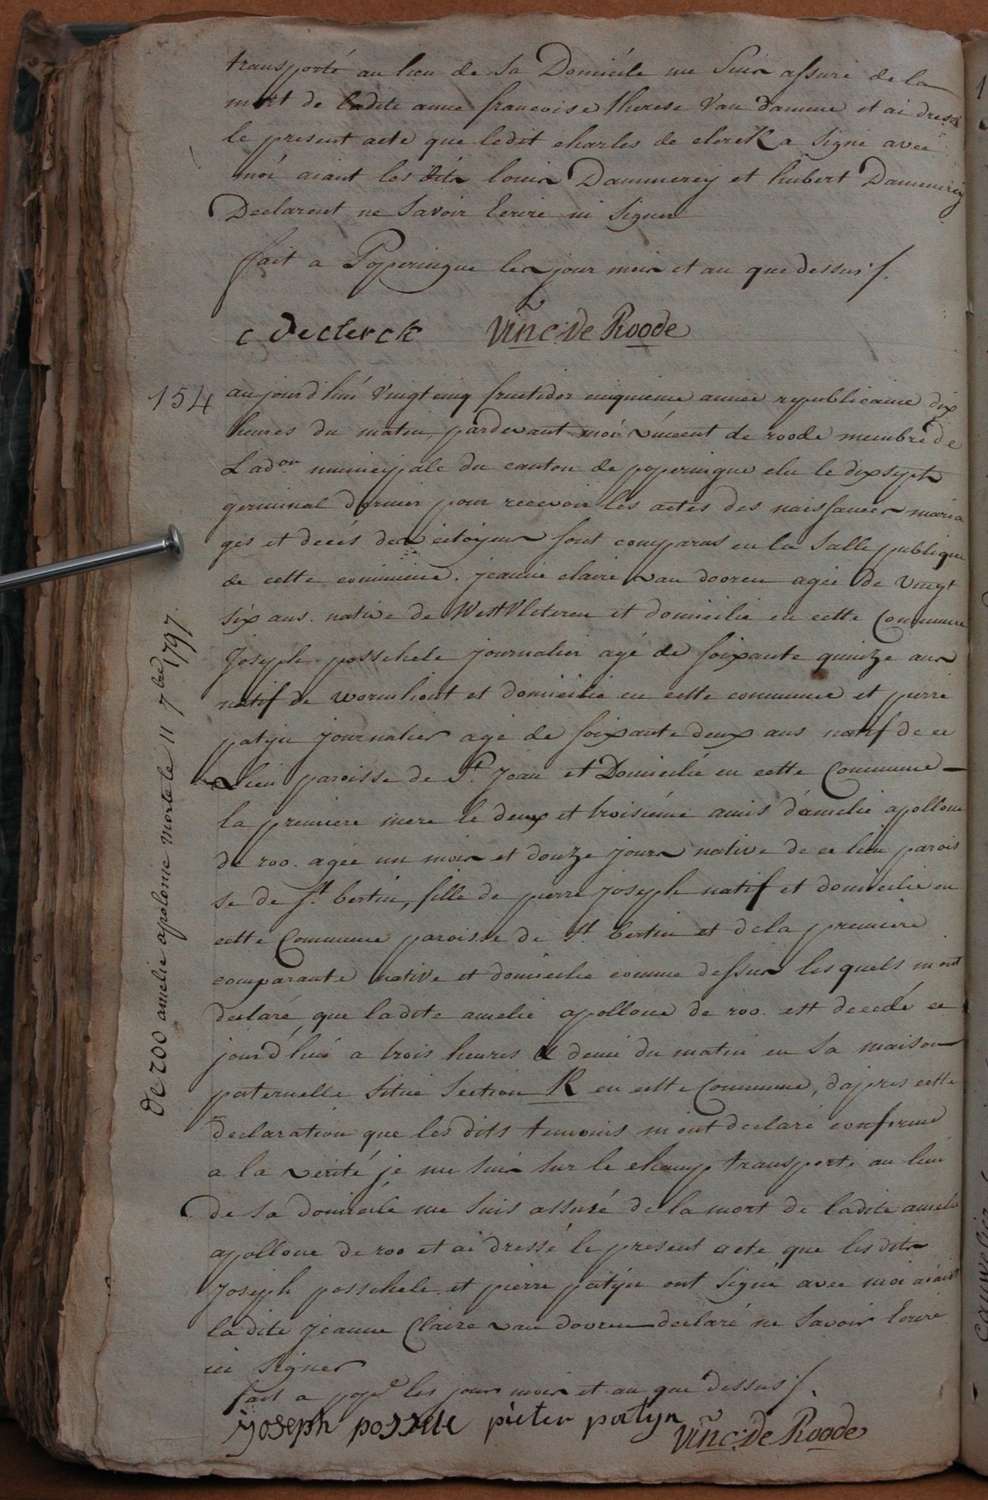 transporté au lieu de sa Domicile me suis assuré de la
mort de ladite anne francoise therese Van damme et ai dressé
le present acte que ledit charles de clerck a signé avec
moi aiant les dits louis Dammerey et hubert Dammerey
Declarent ne savoir Ecrire ni signer
fait a Poperingue les jour mois et an que dessus /.
c Declerck Vinc: De Roode
154 aujourd'hui vingt cinq fructidor cinquieme année republicaine dix
heures du matin, pardevant moi vincent de roode membre de
Ladon municipale du canton de poperingue elu le dixsept
germinal dernier pour recevoir les actes des naissances maria
ges et decés des citoyens sont comparus en la salle publique
de cette commune. jeanne claire van dooren agée de vingt
six ans. native de Westvleteren et domicilié en cette Commune
Joseph posschele journalier agé de soixante quinze ans
natif de wormhout et domicilié en cette commune et pierre
patijn journalier agé de soixante deux ans natif de ce
Lieu paroisse de St. Jean et Domicilié en cette Commune
la premiere mere le deux et troisiéme amis d'amelie apollone
de roo. agée un mois et douze jours native de ce lieu parois
se de St. bertin, fille de pierre joseph natif et domicilié en
cette Commune paroisse de St bertin et de la premiere
comparante native et domicilié comme dessus lesquels m'ont
declaré, que ladite amelie apollone de roo. est decedé ce
jourd'hui a trois heures & demi du matin en sa maison
paternelle situé section R en cette Commune, d'apres cette
declaration que les dits temoins m'ont declaré conforme
a la verité je me suis sur le champ transporté au lieu
de sa domicile me suis assuré de la mort de ladite amelie
apollone de roo et ai dressé le present acte que les dits
Joseph posschele et pierre patijn ont signé avec moi aiant
la dite jeanne Claire van dooren declaré ne savoir Ecrire
ni signer
fait a pope les jour mois et an que dessus /.
joseph possele pieter patyn Vinc: De Roode
de roo amelie apolonie morte le 11 7bre 1797.